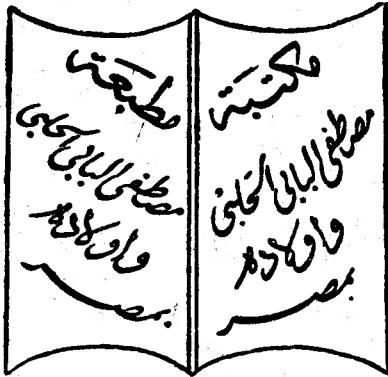 مكتبة
مصطفى البابى الحلبى
وأولاده
بمصر
مطبعة
مصطفى البابى الحلبى
وأولاده
بمصر